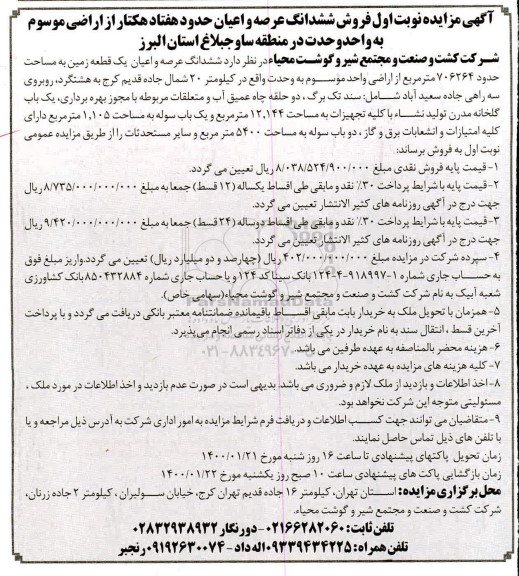 آگهی مزایده نوبت اول فروش ششدانگ عرصه و اعیان حدود هفتاد هکتار از اراضی موسوم
به واحد وحدت در منطقه ساوجبلاغ استان البرز
شرکت کشت و صنعت و مجتمع شیر و گوشت محیاء در نظر دارد ششدانگ عرصه و اعیان یک قطعه زمین به مساحت
حدود ۷۰۶۲۶۴ مترمربع از اراضی واحد موسوم به وحدت واقع در کیلومتر ۲۰ شمال جاده قدیم کرج به هشتگرد، روبروی
سه راهی جاده سعید آباد شامل: سند تک برگ، دو حلقه چاه عمیق آب و متعلقات مربوطه با مجوز بهره برداری، یک باب
گلخانه مدرن تولید نشاء با کلیه تجهیزات به مساحت ۱۲,۱۴۴ مترمربع و یک باب سوله به مساحت ۱,۱۰۵ مترمربع دارای
کلیه امتیازات و انشعابات برق و گاز، دو باب سوله به مساحت ۵۴۰۰ متر مربع و سایر مستحدثات را از طریق مزایده عمومی
نوبت اول به فروش برساند:
۱- قیمت پایه فروش نقدی مبلغ ۸/۰۳۸/۵۲۴/۹۰۰/۰۰۰ ریال تعیین می گردد.
۲- قیمت پایه با شرایط پرداخت ۳۰٪ نقد و مابقی طی اقساط یکساله (۱۲ قسط) جمعا به مبلغ ۸/۷۳۵/۰۰۰/۰۰۰/۰۰۰ ریال
جهت درج در آگهی روزنامه های کثیر الانتشار تعیین می گردد.
۳- قیمت پایه با شرایط پرداخت ۳۰٪ نقد و مابقی طی اقساط دو ساله (۲۴ قسط) جمعا به مبلغ ۹/۴۲۰/۰۰۰/۰۰۰/۰۰۰ ریال
جهت درج در آگهی روزنامه های کثیر الانتشار تعیین می گردد.
۴- سپرده شرکت در مزایده مبلغ ۴۰۲/۰۰۰/۰۰۰/۰۰۰ ریال (چهارصد و دو میلیارد ریال) تعیین می گردد. واریز مبلغ فوق
به حساب جاری شماره ۱-۹۱۸۹۹۷-۴-۱۲۴ بانک سینا کد ۱۲۴ و یا حساب جاری شماره ۸۵۰۴۳۲۸۸۴ بانک کشاورزی
شعبه آبیک به نام شرکت کشت و صنعت و مجتمع شیر و گوشت محیاء (سهامی خاص).
۵- همزمان با تحویل ملک به خریدار بابت مابقی اقساط باقیمانده ضمانتنامه معتبر بانکی دریافت می گردد و با پرداخت
آخرین قسط، انتقال سند به نام خریدار در یکی از دفاتر اسناد رسمی انجام می پذیرد.
۶- هزینه محضر بالمناصفه به عهده طرفین می باشد.
۷- کلیه هزینه های مزایده به عهده خریدار می باشد.
۸- اخذ اطلاعات و بازدید از ملک لازم و ضروری می باشد. بدیهی است در صورت عدم بازدید و اخذ اطلاعات در مورد ملک،
مسئولیتی متوجه این شرکت نخواهد بود.
۹- متقاضیان می توانند جهت کسب اطلاعات و دریافت فرم شرایط مزایده به امور اداری شرکت به آدرس ذیل مراجعه و یا
با تلفن های ذیل تماس حاصل نمایند.
زمان تحویل پاکتهای پیشنهادی تا ساعت ۱۶ روز شنبه مورخ ۱۴۰۰/۰۱/۲۱
زمان بازگشایی پاکت های پیشنهادی ساعت ۱۰ صبح روز یکشنبه مورخ ۱۴۰۰/۰۱/۲۲
محل برگزاری مزایده: استان تهران، کیلومتر ۱۶ جاده قدیم تهران کرج، خیابان سولیران، کیلومتر ۲ جاده زرنان،
شرکت کشت و صنعت و مجتمع شیر و گوشت محیاء.
تلفن ثابت: ۰۲۱۶۶۲۸۲۰۶۰ - دورنگار ۰۲۸۳۲۹۳۸۹۳۲
تلفن همراه: ۰۹۳۳۹۴۳۴۲۲۵ اله داد - ۰۹۱۹۲۶۳۰۰۷۴ رنجبر